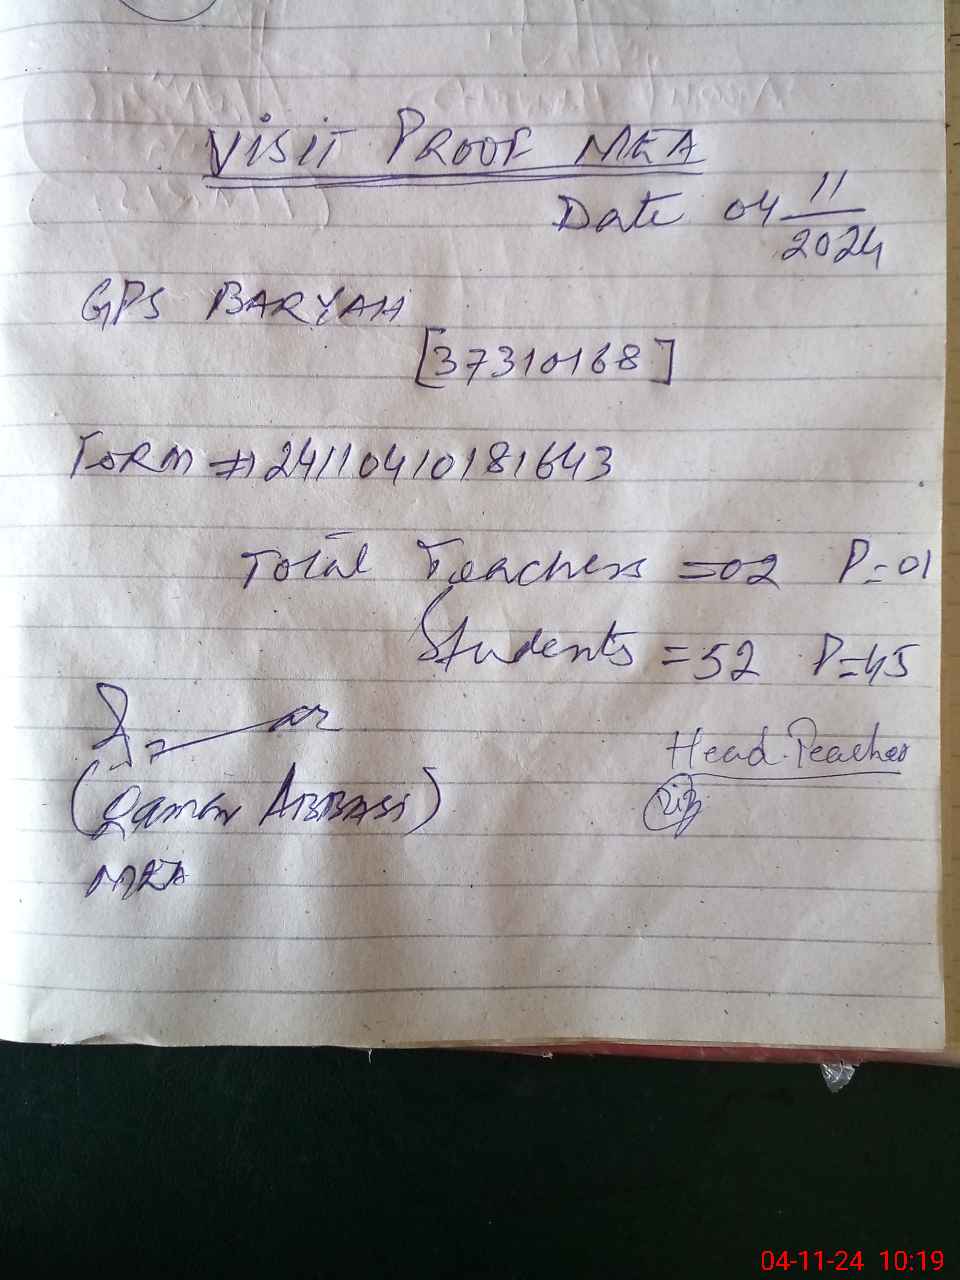 VISIT PROOF MEA
Date 04 11/2024
GPS BARYAH
[37310168]
FORM # 24110410181643
Total Teachers = 02 P=01
Students = 52 P=45
Head Teacher
(Qamar ABBASI)
MEA
04-11-24 10:19